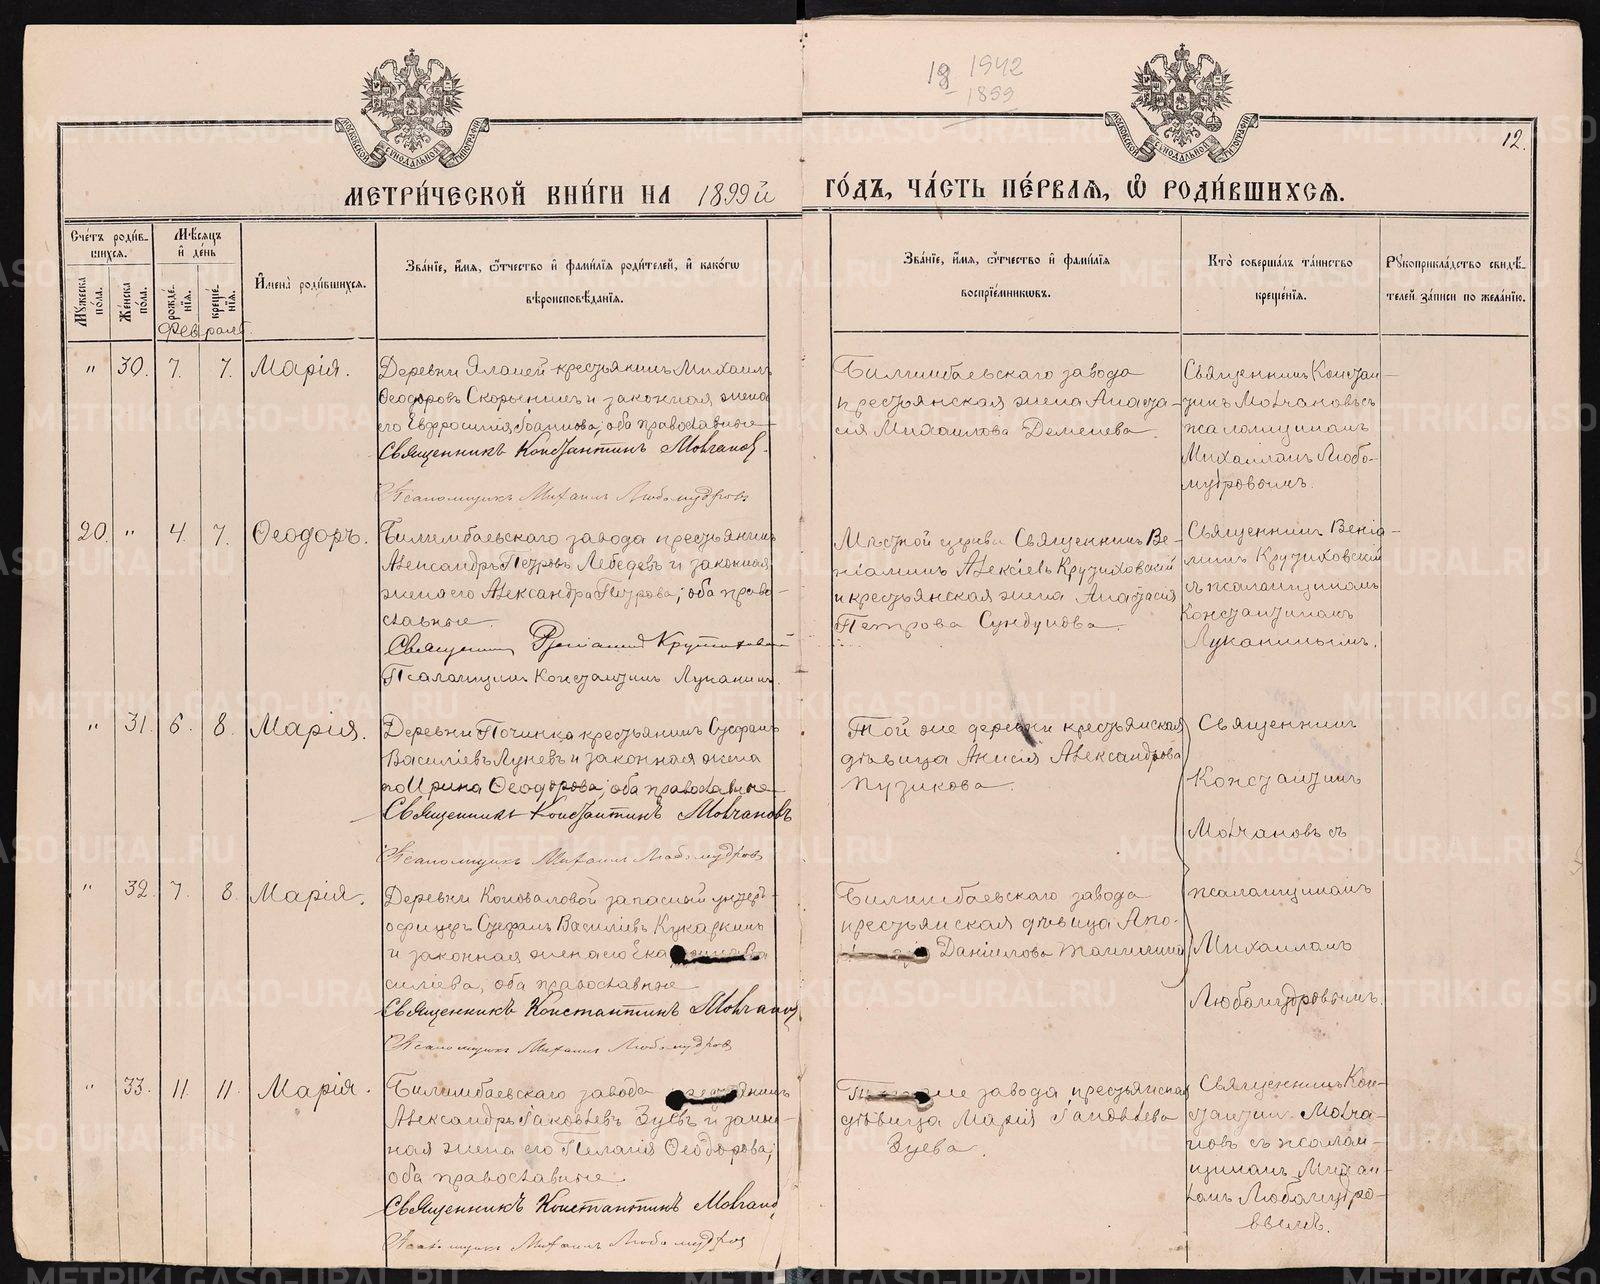 18 1942
1899
МОСКОВСКОЙ СѴНОДАЛЬНОЙ ТИПОГРАФІИ
МОСКОВСКОЙ СѴНОДАЛЬНОЙ ТИПОГРАФІИ
12.
МЕТРИ́ЧЕСКОЙ КНИ́ГИ НА 1899й ГО́ДЪ, ЧА́СТЬ ПЕ́РВАЯ, Ѡ РОДИ́ВШИХСЯ.
Сче́тъ роди́в-
шихся.
Му́жеска по́ла.
Же́нска по́ла.
Мѣ́сяцъ
и́ де́нь
рожде́-
нія.
креще́-
нія.
Февраль.
И҆мена̀ роди́вшихся.
Зва́нїе, и҆́мя, ѻ҆́тчество и҆ фами́лїя роди́телей, и҆ како́гѡ
вѣроисповѣ́данїя.
Зва́нїе, и҆́мя, ѻ҆́тчество и҆ фами́лїя
воспрїе́мниковъ.
Кто̀ соверша́лъ та́инство
креще́нїя.
Рꙋкоприкла́дство свидѣ́-
телей за́писи по жела́нїю.
" 30. 7. 7. Марія.
Деревни Яланей крестьянинъ Михаилъ
Ѳеодоровъ Скорынинъ и законная жена
его Евфросинія Іоаннова, оба православные
Священникъ Константинъ Молчановъ.
Псаломщикъ Михаилъ Любомудровъ
Билимбаевскаго завода
крестьянская жена Анаста-
сія Михаилова Деменева.
Священникъ Констан-
тинъ Молчановъ съ
псаломщикомъ
Михаиломъ Любо-
мудровымъ.
20. " 4. 7. Ѳеодоръ.
Билимбаевскаго завода крестьянинъ
Александръ Петровъ Лебедевъ и законная
жена его Александра Петрова, оба право-
славные.
Священникъ Веніаминъ Крутиховскій
Псаломщикъ Константинъ Луканинъ.
Мѣстной церкви Священникъ Ве-
ніаминъ Алексіевъ Крутиховскій
и крестьянская жена Анастасія
Петрова Сундукова.
Священникъ Веніа-
минъ Крутиховскій
съ псаломщикомъ
Константиномъ
Луканинымъ.
" 31. 6. 8. Марія.
Деревни Починка крестьянинъ Стефанъ
Василіевъ Луневъ и законная жена
его Ирина Ѳеодорова, оба православные
Священникъ Константинъ Молчановъ
Псаломщикъ Михаилъ Любомудровъ
Той же деревни крестьянская
дѣвица Анисія Александрова
Пузикова.
Священникъ
Константинъ
Молчановъ съ
псаломщикомъ
Михаиломъ
Любомудровымъ.
" 32. 7. 8. Марія.
Деревни Коноваловой запасный унтеръ-
офицеръ Стефанъ Василіевъ Кукаркинъ
и законная жена его
силіева, оба православные
Священникъ Константинъ Молчановъ
Псаломщикъ Михаилъ Любомудровъ
Билимбаевскаго завода
крестьянская дѣвица
Даніилова
" 33. 11. 11. Марія.
Билимбаевскаго завода крестьянинъ
Александръ Іаковлевъ Зуевъ и закон-
ная жена его Пелагія Ѳеодорова,
оба православные.
Священникъ Константинъ Молчановъ
Псаломщикъ Михаилъ Любомудровъ
Того же завода крестьянская
дѣвица Марія Іаковлева
Зуева.
Священникъ Кон-
стантинъ Молча-
новъ съ псалом-
щикомъ Михаи-
ломъ Любомудро-
вымъ.